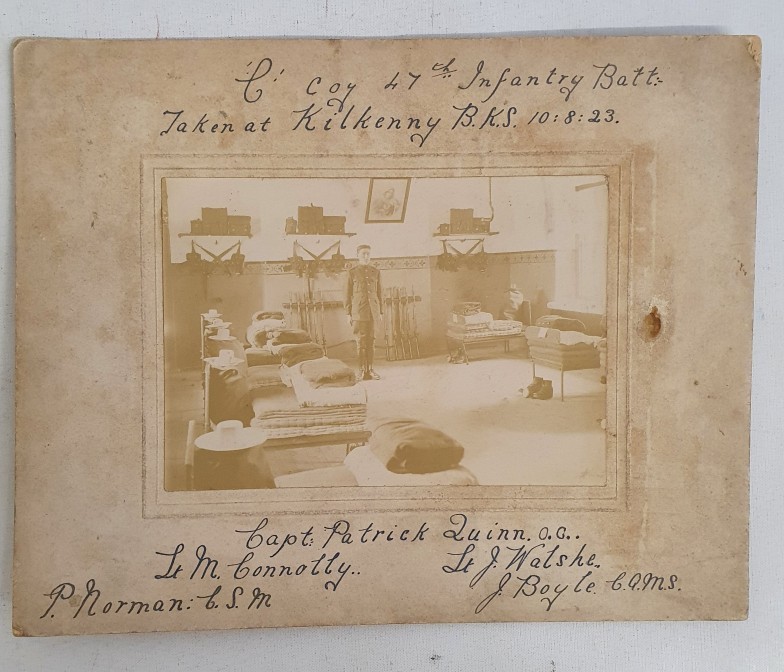 'C' Coy 47th Infantry Batt:
Taken at Kilkenny B.K.S. 10:8:23.
Capt: Patrick Quinn. O.C..
Lt M. Connolly..
Lt J. Walshe.
P. Norman: C.S.M
J. Boyle. C.Q.M.S.